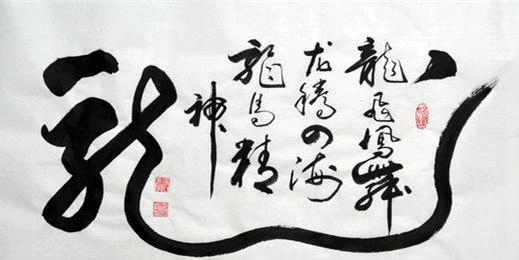 龍
龍飛鳳舞
龙騰四海
龍馬精
神